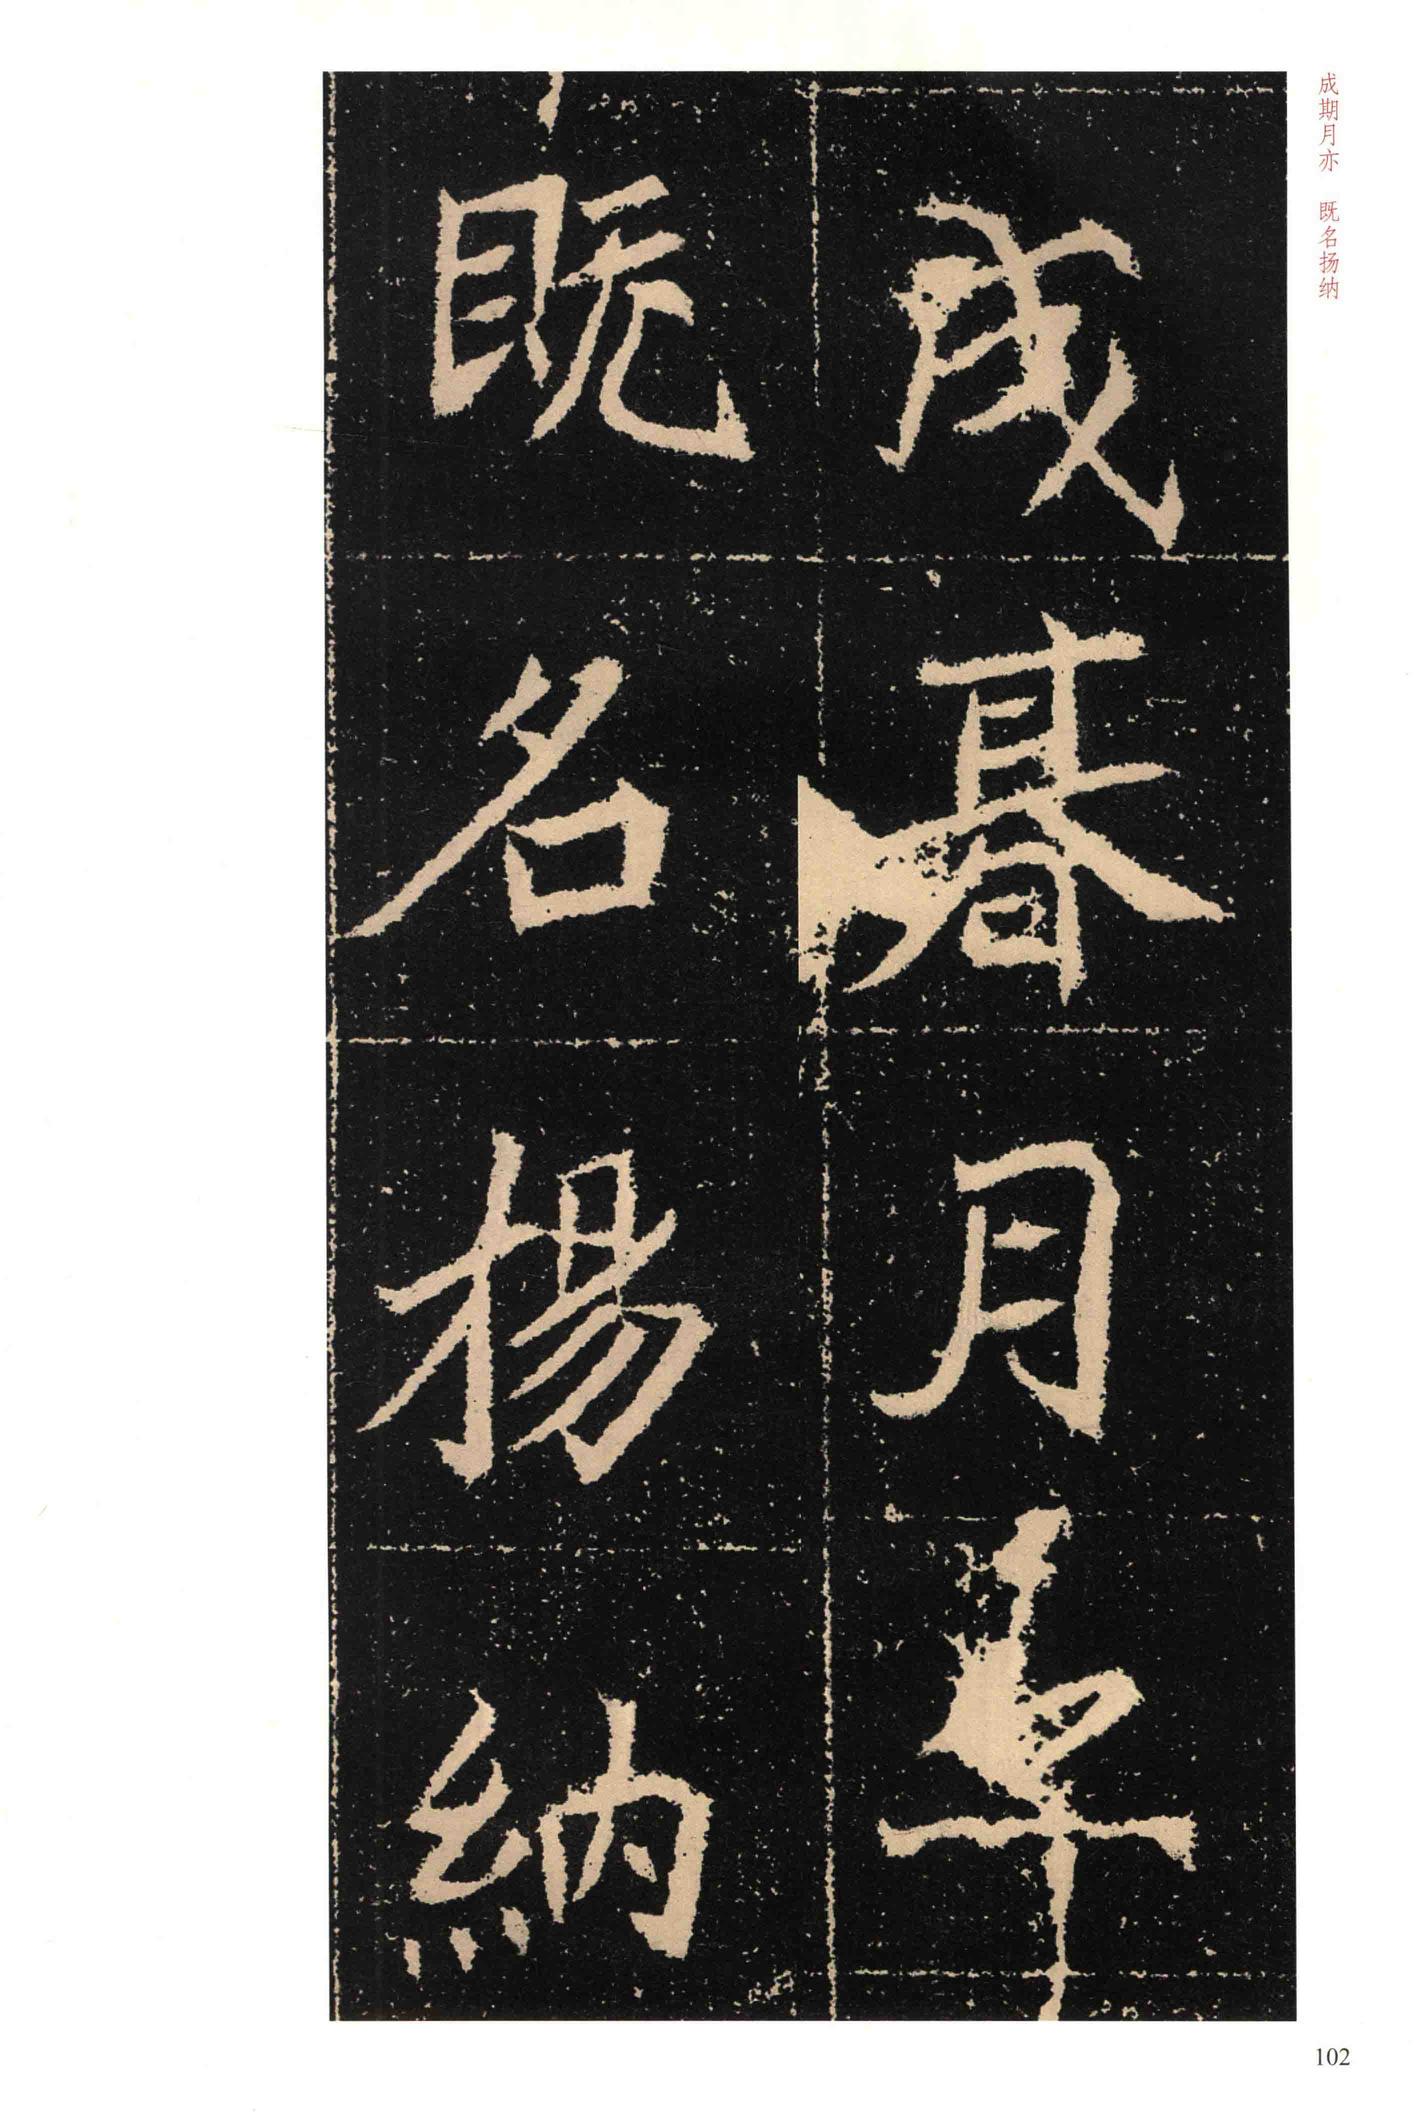 成期月亦 既名扬纳
成朞月
既名揚納
102